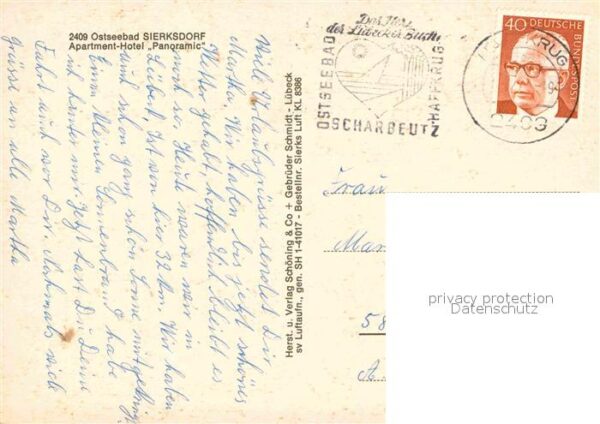 2409 Ostseebad SIERKSDORF
Apartment-Hotel „Panoramic"
Viele Urlaubsgrüsse sendet Dir
Martha, Wir haben bis jetzt schönes
Wetter gehabt, hoffentlich bleibt es
noch so. Heute waren wir in
Lübeck, Ist von hier 32 km. Wir haben
auch schon ganz schön Sonne mitgekriegt
Einen kleinen Sonnenbrand habe
ich hinter mir. Jetzt hast Du Deine
Fahrt auch vor Dir. Nochmals viele
Grüsse an alle Martha
Herst. u. Verlag Schöning & Co + Gebrüder Schmidt - Lübeck
sv Luftaufn., gen. SH 1-41017 - Bestellnr. Sierks Luft KL 8386
Das Herz
der Lübecker Bucht
OSTSEEBAD
SCHARBEUTZ
HAFFKRUG
40 DEUTSCHE BUNDESPOST
2409
Frau
Mar
58
A
privacy protection
Datenschutz